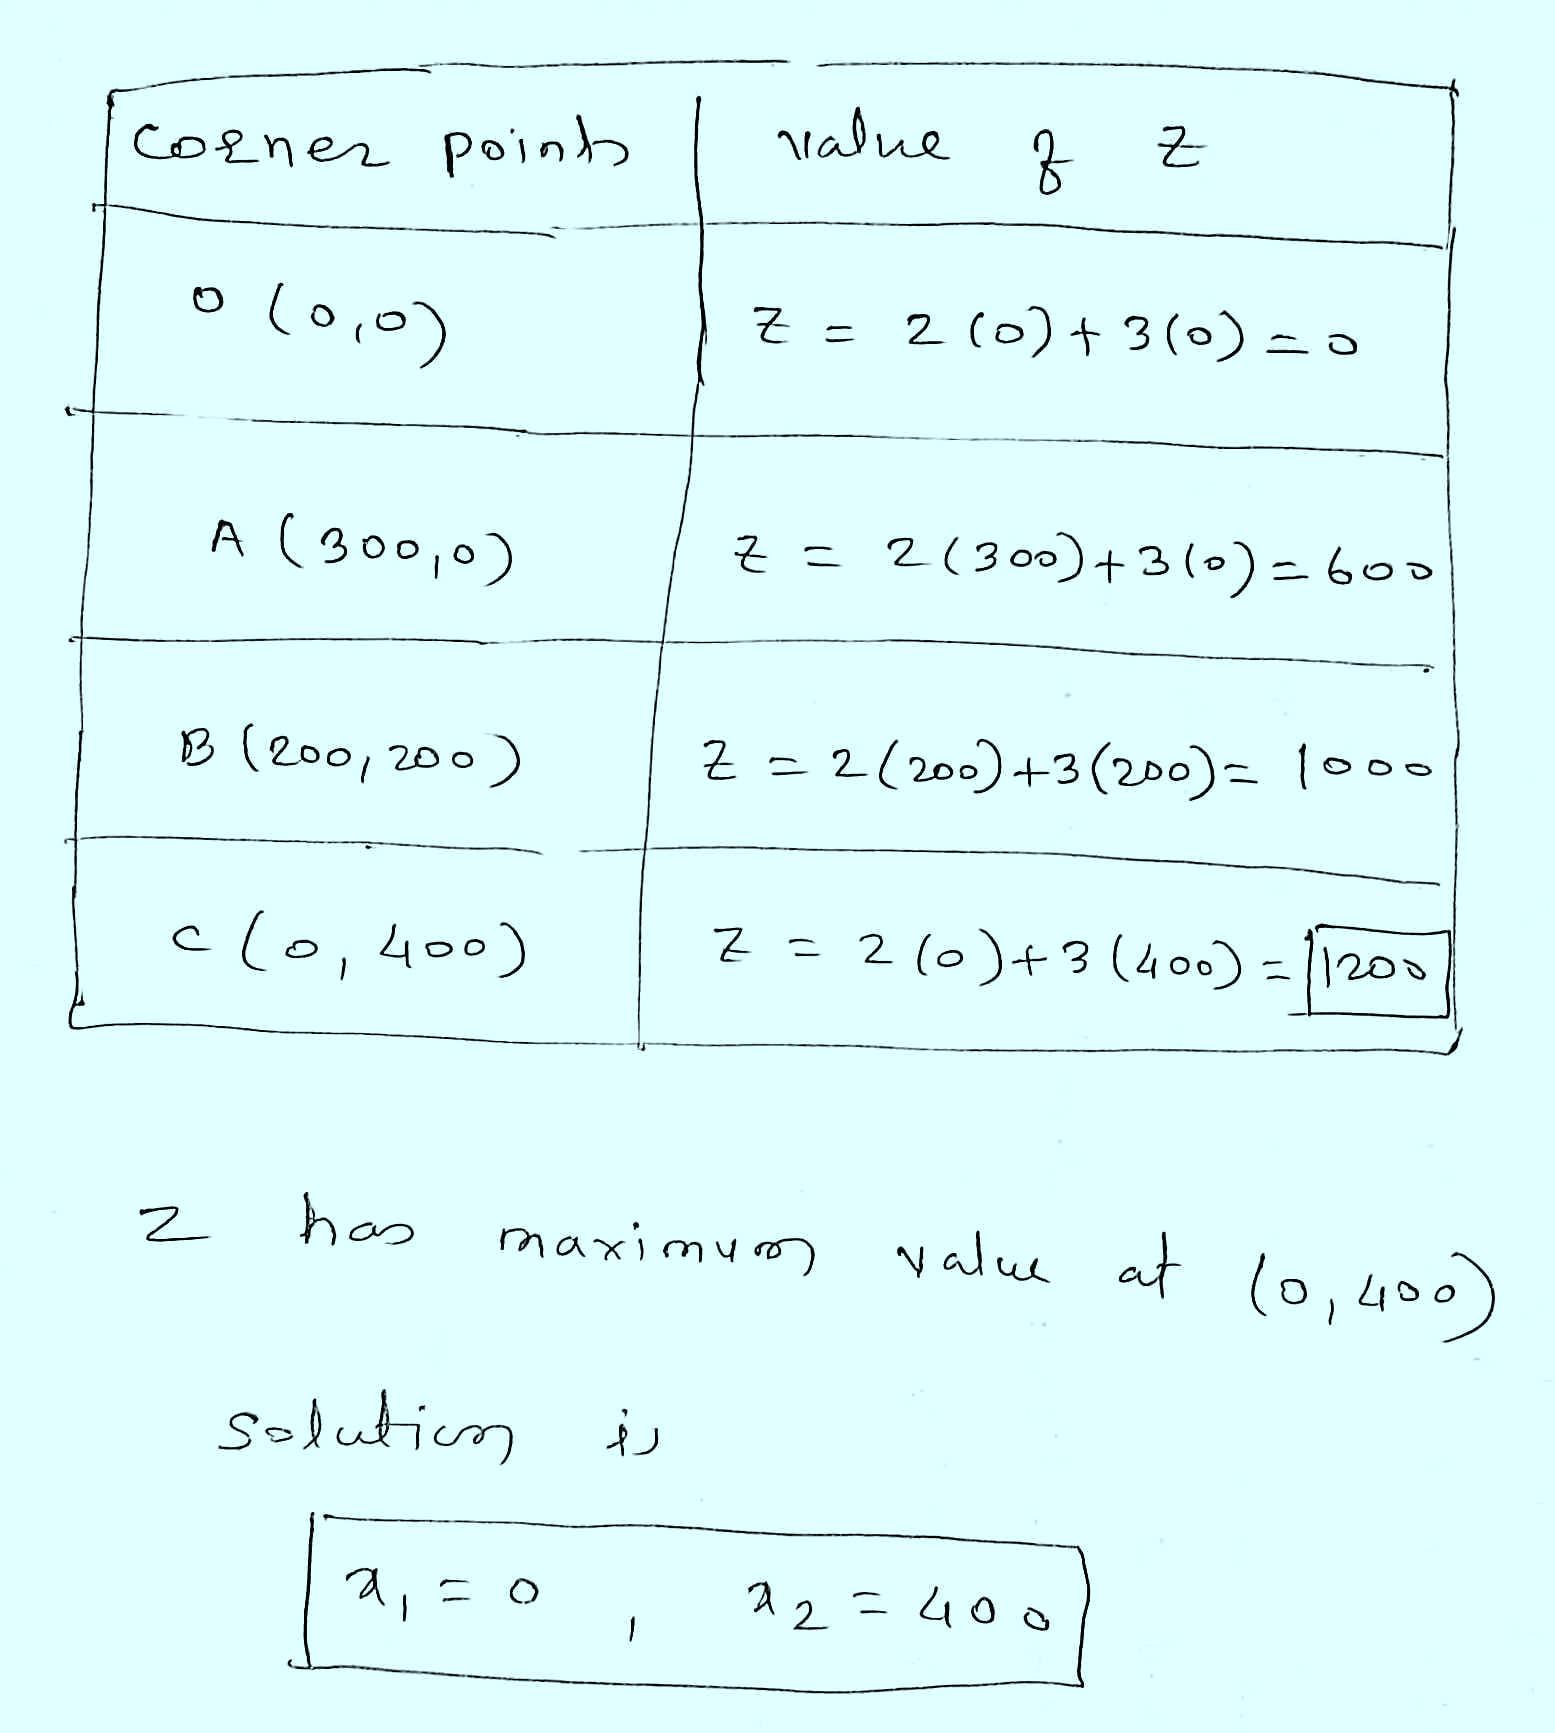 corner points value of Z
O (0,0) Z = 2(0)+3(0)=0
A (300,0) Z = 2(300)+3(0)=600
B (200,200) Z = 2(200)+3(200)= 1000
C (0,400) Z = 2(0)+3(400)=1200
Z has maximum value at (0,400)
solution is
x₁ = 0 , x₂ = 400